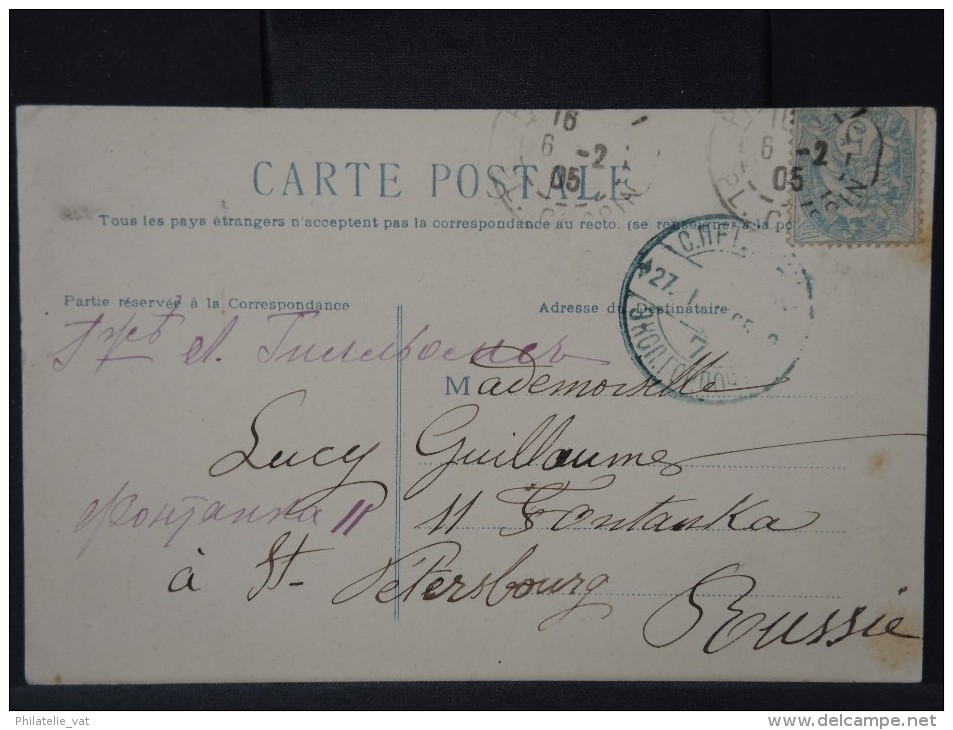 CARTE POSTALE
Tous les pays étrangers n'acceptent pas la correspondance au recto. (se renseigner à la po
Partie réservée à la Correspondance
Adresse du Destinataire
16
6 -2
05
16
6 -2
05
PL.
С.ПЕТ
27. 1
7
Mademoiselle
Lucy Guillaume
Фонтанка 11
11 Fontanka
à St- Pétersbourg
Russie
Philatelie_vat
delcampe.net